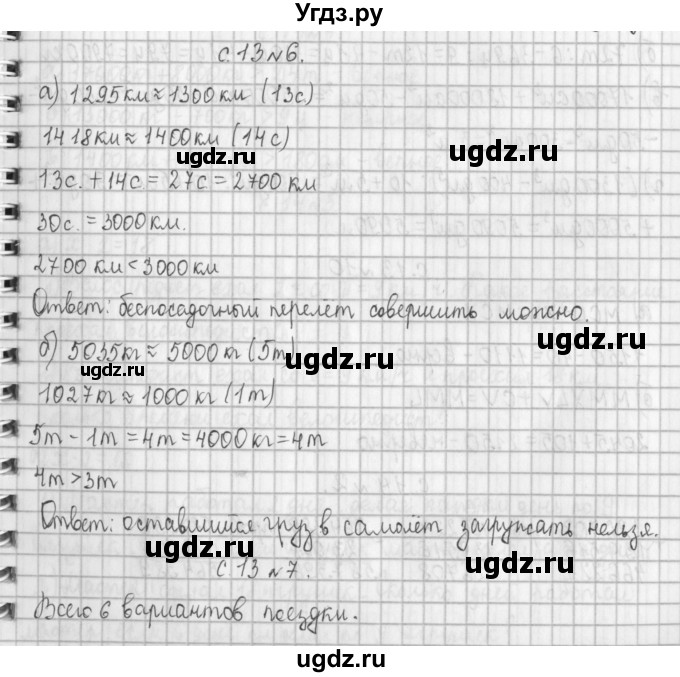 Угдз.ру
с. 13 № 6.
а) 1295км ≈ 1300км (13с)
1418км ≈ 1400км (14с)
ugdz.ru ugdz.ru
13с. + 14с = 27с = 2700 км
30с. = 3000км.
ugdz.ru ugdz.ru
2700 км < 3000 км
Ответ: беспосадочный перелёт совершить можно.
ugdz.ru ugdz.ru
б) 5035кг ≈ 5000 кг (5т)
ugdz.ru
1027кг ≈ 1000 кг (1т)
5т - 1т = 4т = 4000кг = 4т
ugdz.ru ugdz.ru
4т > 3т
Ответ: оставшийся груз в самолёт загружать нельзя.
ugdz.ru ugdz.ru
с. 13 № 7.
Всего 6 вариантов поездки.
ugdz.ru
ugdz.ru